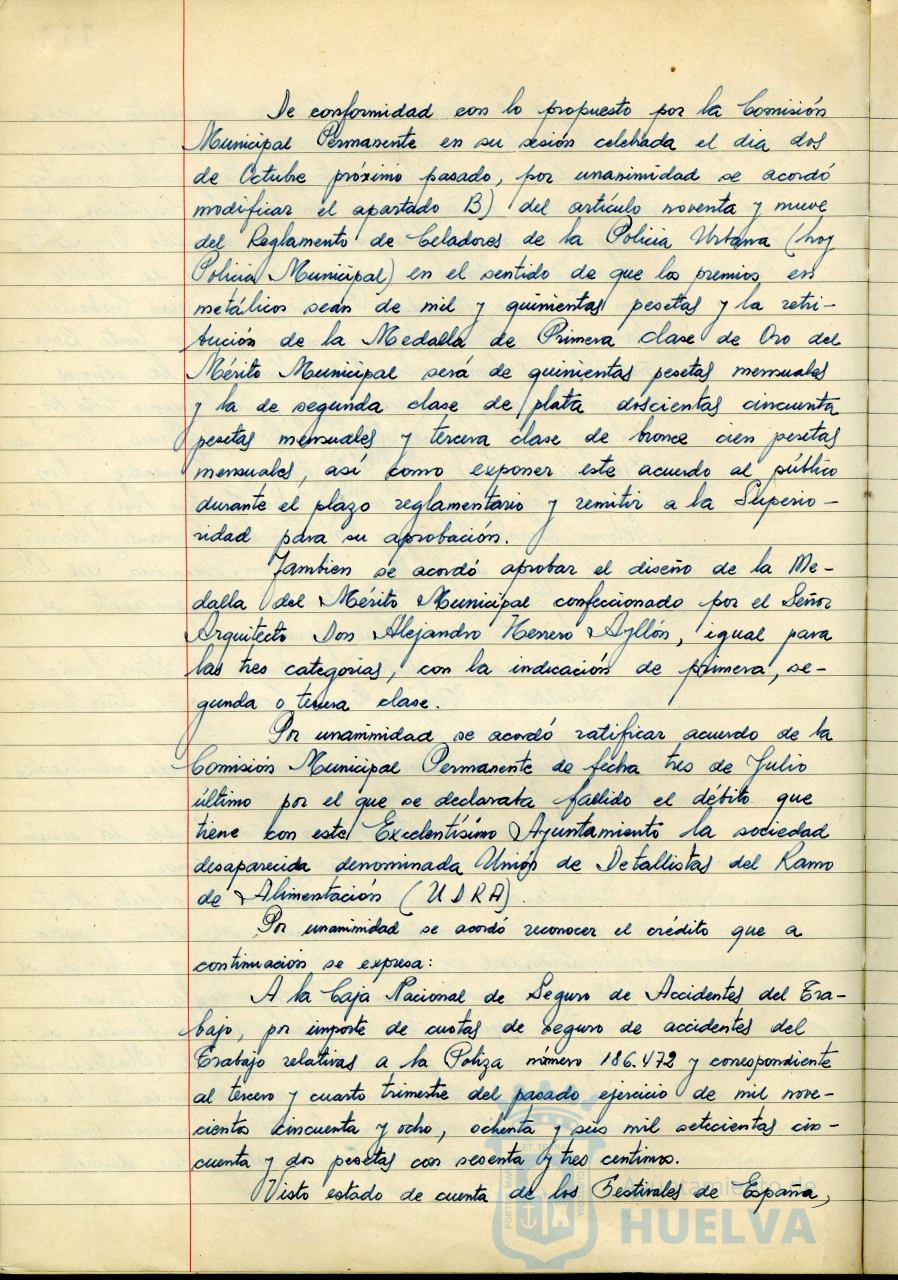 De conformidad con lo propuesto por la Comisión
Municipal Permanente en su sesión celebrada el dia dos
de Octubre próximo pasado, por unanimidad se acordó
modificar el apartado B) del artículo noventa y nueve
del Reglamento de Celadores de la Policia Urbana (hoy
Policia Municipal) en el sentido de que los premios en
metálicos sean de mil y quinientas pesetas y la retri-
bución de la Medalla de Primera clase de Oro del
Mérito Municipal será de quinientas pesetas mensuales
y la de segunda clase de plata doscientas cincuenta
pesetas mensuales y tercera clase de bronce cien pesetas
mensuales, así como exponer este acuerdo al público
durante el plazo reglamentario y remitir a la Superio-
ridad para su aprobación.
Tambien se acordó aprobar el diseño de la Me-
dalla del Mérito Municipal confeccionado por el Señor
Arquitecto Don Alejandro Herrero Ayllón, igual para
las tres categorias, con la indicación de primera, se-
gunda o tercera clase.
Por unanimidad se acordó ratificar acuerdo de la
Comisión Municipal Permanente de fecha tres de Julio
último por el que se declaraba fallido el débito que
tiene con este Excelentísimo Ayuntamiento la sociedad
desaparecida denominada Unión de Detallistas del Ramo
de Alimentación (UDRA).
Por unanimidad se acordó reconocer el crédito que a
continuacion se expresa:
A la Caja Nacional de Seguro de Accidentes del Tra-
bajo, por importe de cuotas de seguro de accidentes del
Trabajo relativas a la Poliza número 186.472 y correspondiente
al tercero y cuarto trimestre del pasado ejercicio de mil nove-
cientos cincuenta y ocho, ochenta y seis mil setecientas cin-
cuenta y dos pesetas con sesenta y tres centimos.
Visto estado de cuenta de los Festivales de España,
Ayuntamiento de
HUELVA